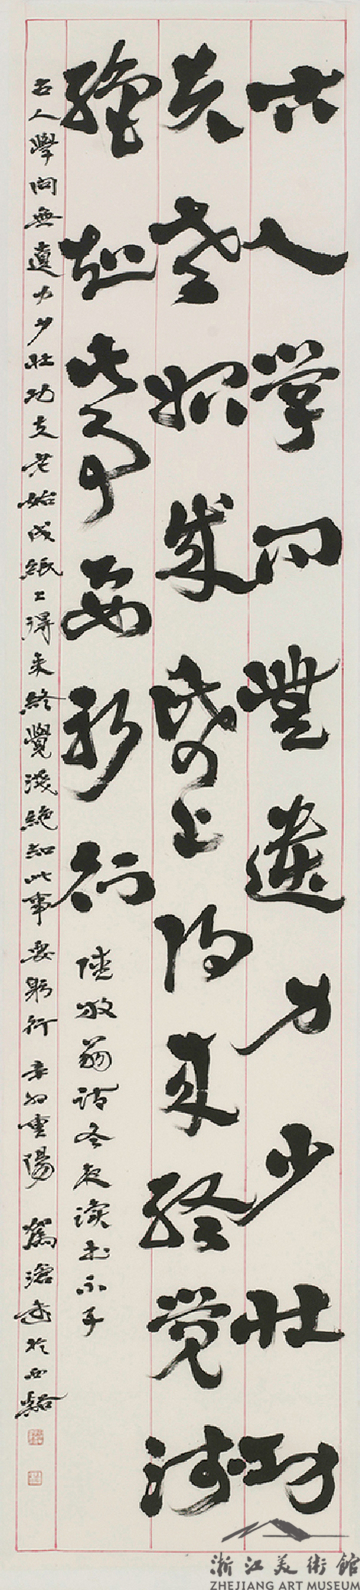 古人學問無遺力少壯功
夫老始成紙上得来終覺淺
絕知此事要躬行 陸放翁詩冬夜讀書示子
古人學問無遺力少壯功夫老始成紙上得来終覺淺絕知此事要躬行 辛卯重陽 於西谿
浙江美術館
ZHEJIANG ART MUSEUM